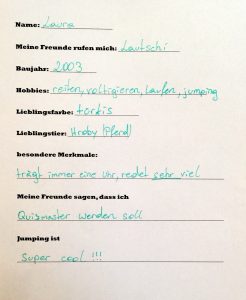 Name: Laura
Meine Freunde rufen mich: Lautschi
Baujahr: 2003
Hobbies: reiten, voltigieren, laufen, jumping
Lieblingsfarbe: türkis
Lieblingstier: (Pferd)
besondere Merkmale:
trägt immer eine Uhr, redet sehr viel
Meine Freunde sagen, dass ich
Quizmaster werden soll
Jumping ist
Super cool !!!